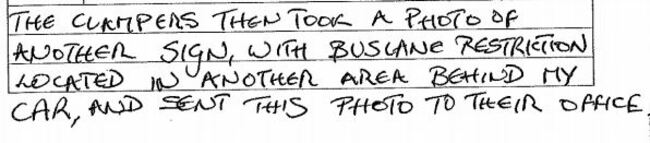 THE CLAMPERS THEN TOOK A PHOTO OF
ANOTHER SIGN, WITH BUSLANE RESTRICTION
LOCATED IN ANOTHER AREA BEHIND MY
CAR, AND SENT THIS PHOTO TO THEIR OFFICE,